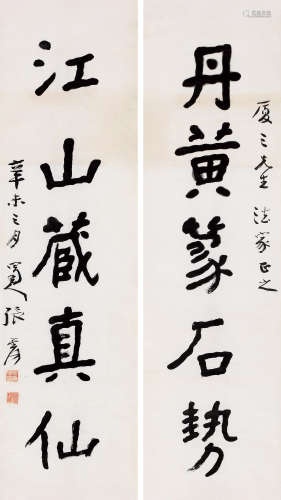 先生 法家正之
丹黄篆石勢
江山藏真仙
辛未三月 蜀人 張爰